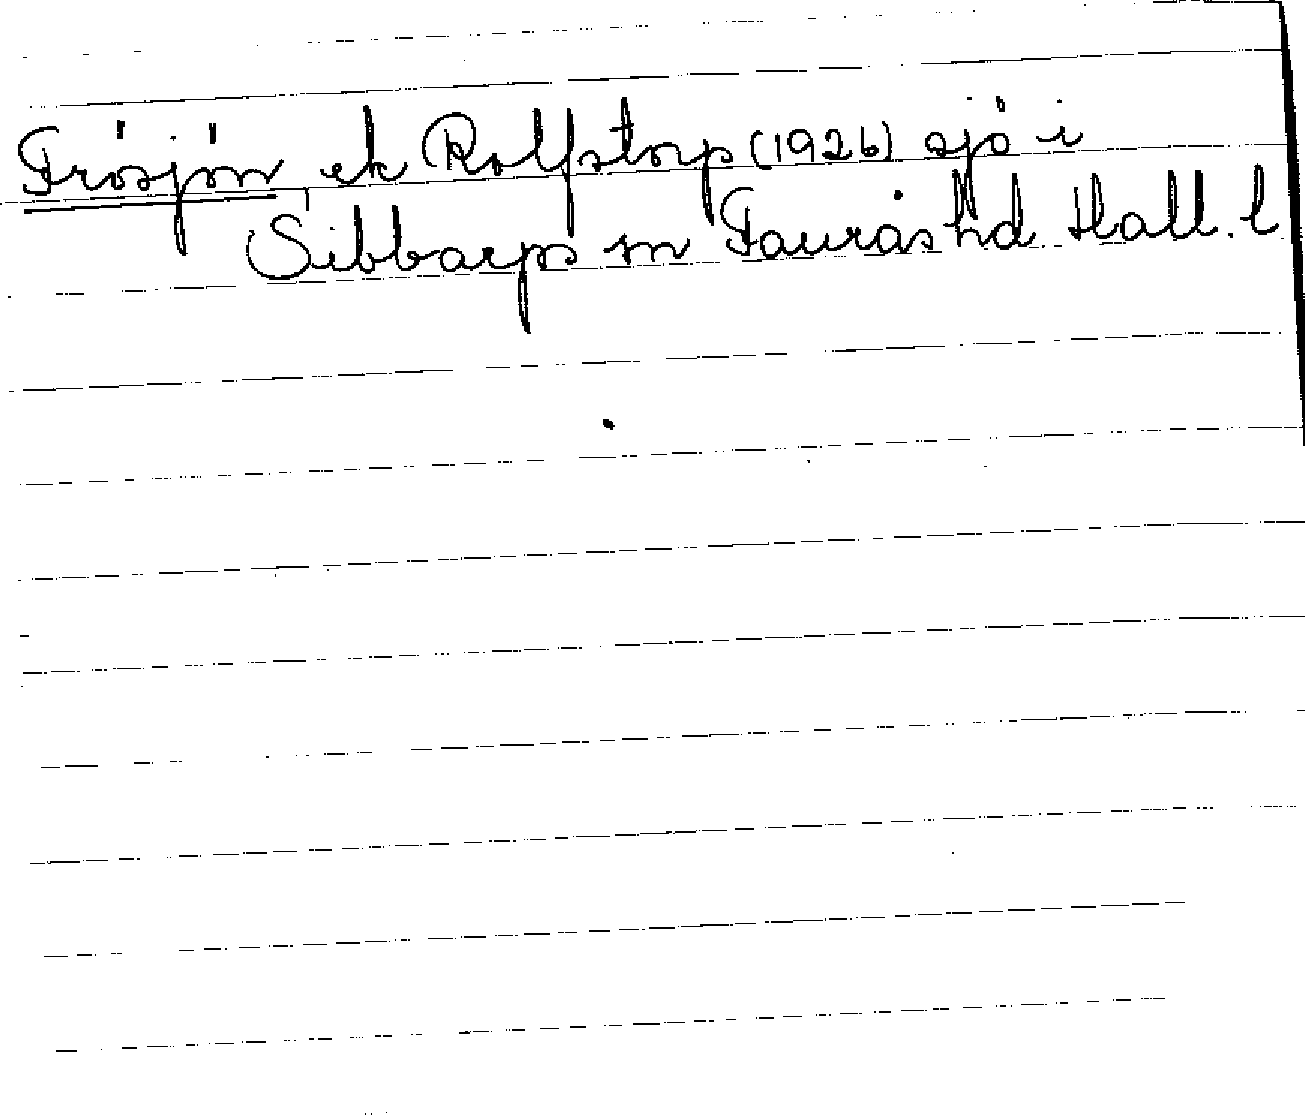 Frösjön ek Rolfstorp (1926) sjö i
Sibbarps sn Faurås hd Hall. l